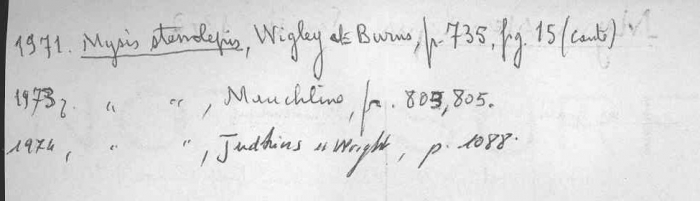 1971. Mysis stenolepis, Wigley et Burns, p. 735, fig. 15 (carte)
1973, " ", Mauchline, p. 803, 805.
1974, " ", Judkins et Wright, p. 1088.